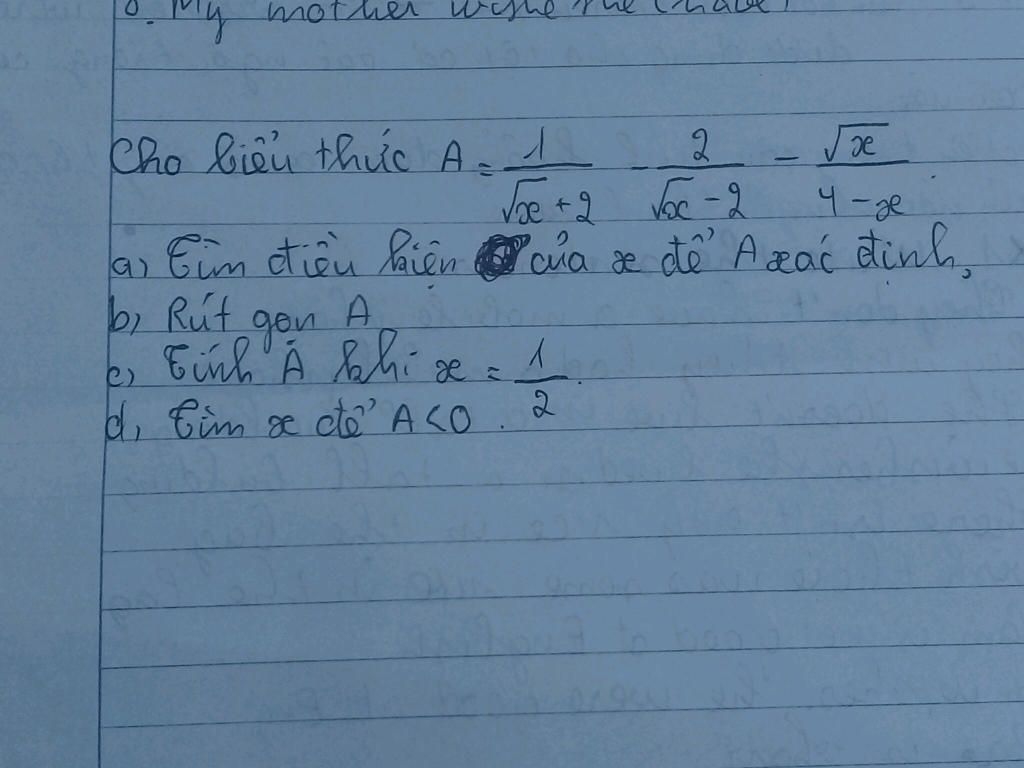 8. My mother
Cho biểu thức A = 1/(√x + 2) - 2/(√x - 2) - √x/(4 - x).
a, Tìm điều kiện của x để A xác định,
b, Rút gọn A
c, Tính A khi x = 1/2.
d, Tìm x để A < 0.